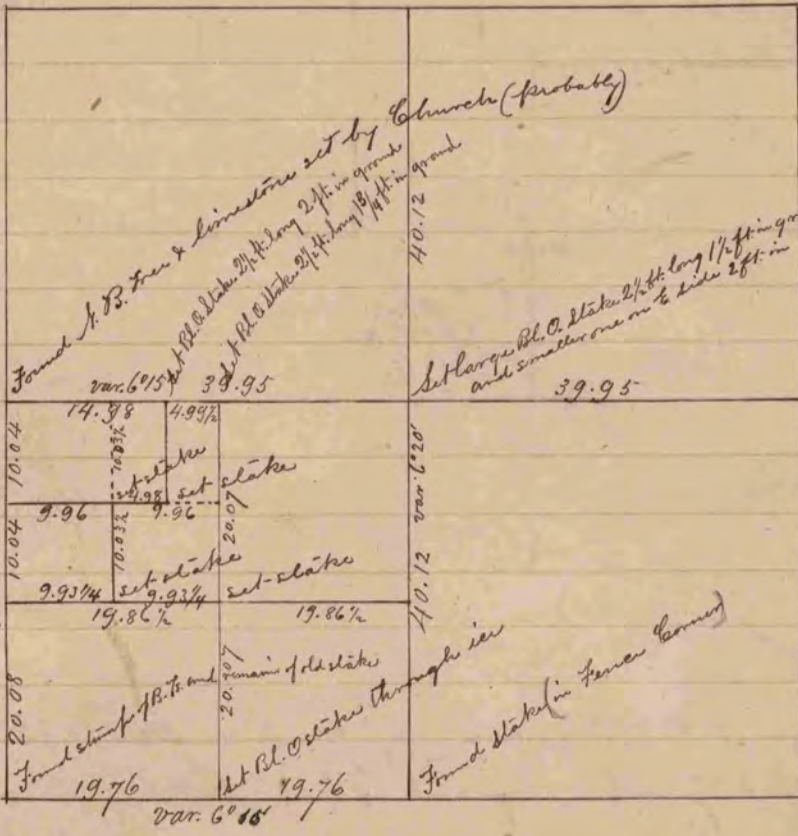 Found N. B. Tree & limestone set by Church (probably)
Set Bl. O. Stake 2½ ft. long 2 ft. in ground
Set Bl. O. Stake 2½ ft. long 1¾ ft. in ground
40.12
Set large Bl. O. Stake 2½ ft. long 1½ ft in gr
and smaller one on E side 2 ft. in
var. 6°15'
39.95
39.95
14.98
4.99½
10.04
10.03½
set stake
4.98
set stake
9.96
9.96
20.07
40.12 var. 6°20'
10.04
10.03½
set stake
set stake
9.93¼
9.93¼
19.86½
19.86½
20.08
20.07
Found stump of B. Ts. and remains of old stake
Set Bl. O stake through ice
Found Stake (in Fence Corner)
19.76
19.76
var. 6° 15'